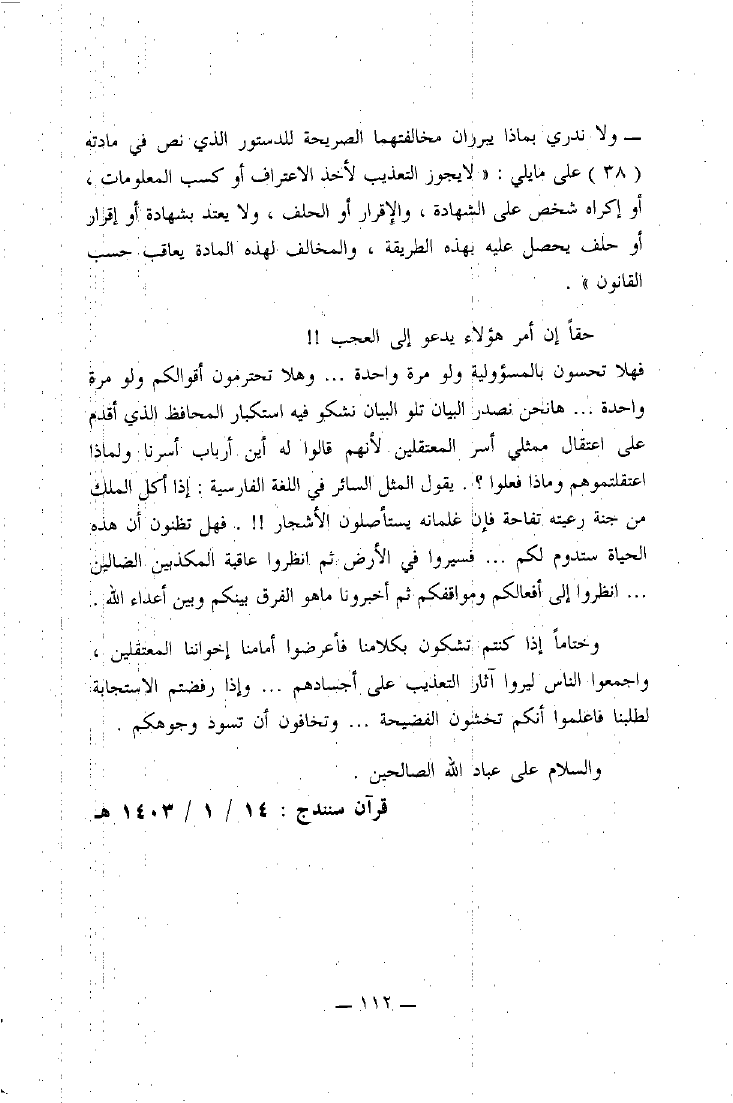 ــ ولا ندري بماذا يبرزان مخالفتهما الصريحة للدستور الذي نص في مادته
( ٣٨ ) على مايلي : « لايجوز التعذيب لأخذ الاعتراف أو كسب المعلومات ،
أو إكراه شخص على الشهادة ، والإقرار أو الحلف ، ولا يعتد بشهادة أو إقرار
أو حلف يحصل عليه بهذه الطريقة ، والمخالف لهذه المادة يعاقب حسب
القانون » .
حقاً إن أمر هؤلاء يدعو إلى العجب !!
فهلا تحسون بالمسؤولية ولو مرة واحدة ... وهلا تحترمون أقوالكم ولو مرة
واحدة ... هانحن نصدر البيان تلو البيان نشكو فيه استكبار المحافظ الذي أقدم
على اعتقال ممثلي أسر المعتقلين لأنهم قالوا له أين أرباب أسرنا ولماذا
اعتقلتموهم وماذا فعلوا ؟ . يقول المثل السائر في اللغة الفارسية : إذا أكل الملك
من جنة رعيته تفاحة فإن غلمانه يستأصلون الأشجار !! . فهل تظنون أن هذه
الحياة ستدوم لكم ... فسيروا في الأرض ثم انظروا عاقبة المكذبين الضالين
... انظروا إلى أفعالكم ومواقفكم ثم أخبرونا ماهو الفرق بينكم وبين أعداء الله .
وختاماً إذا كنتم تشكون بكلامنا فأعرضوا أمامنا إخواننا المعتقلين ،
واجمعوا الناس ليروا آثار التعذيب على أجسادهم ... وإذا رفضتم الاستجابة
لطلبنا فاعلموا أنكم تخشون الفضيحة ... وتخافون أن تسود وجوهكم .
والسلام على عباد الله الصالحين .
قرآن سنندج : ١٤ / ١ / ١٤٠٣ هـ
ــ ١١٢ ــ